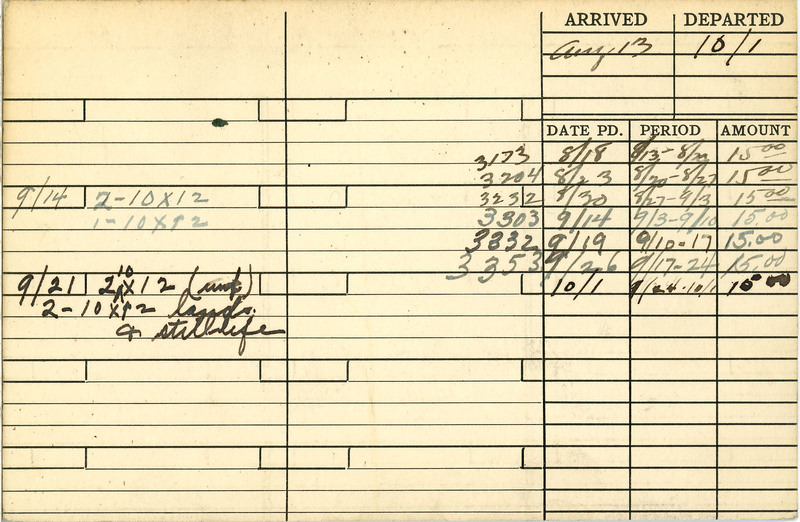 ARRIVED DEPARTED
Aug 13 10/1
DATE PD. PERIOD AMOUNT
3173 8/18 8/13-8/20 15.00
3204 8/23 8/20-8/27 15.00
9/14 2-10X12 3232 8/30 8/27-9/3 15.00
1-10X12 3303 9/14 9/3-9/10 15.00
3332 9/19 9/10-17 15.00
3353 9/26 9/17-24 15.00
9/21 2 10 X12 10/1 9/24-10/1 15.00
2-10X12 lands.
& still life